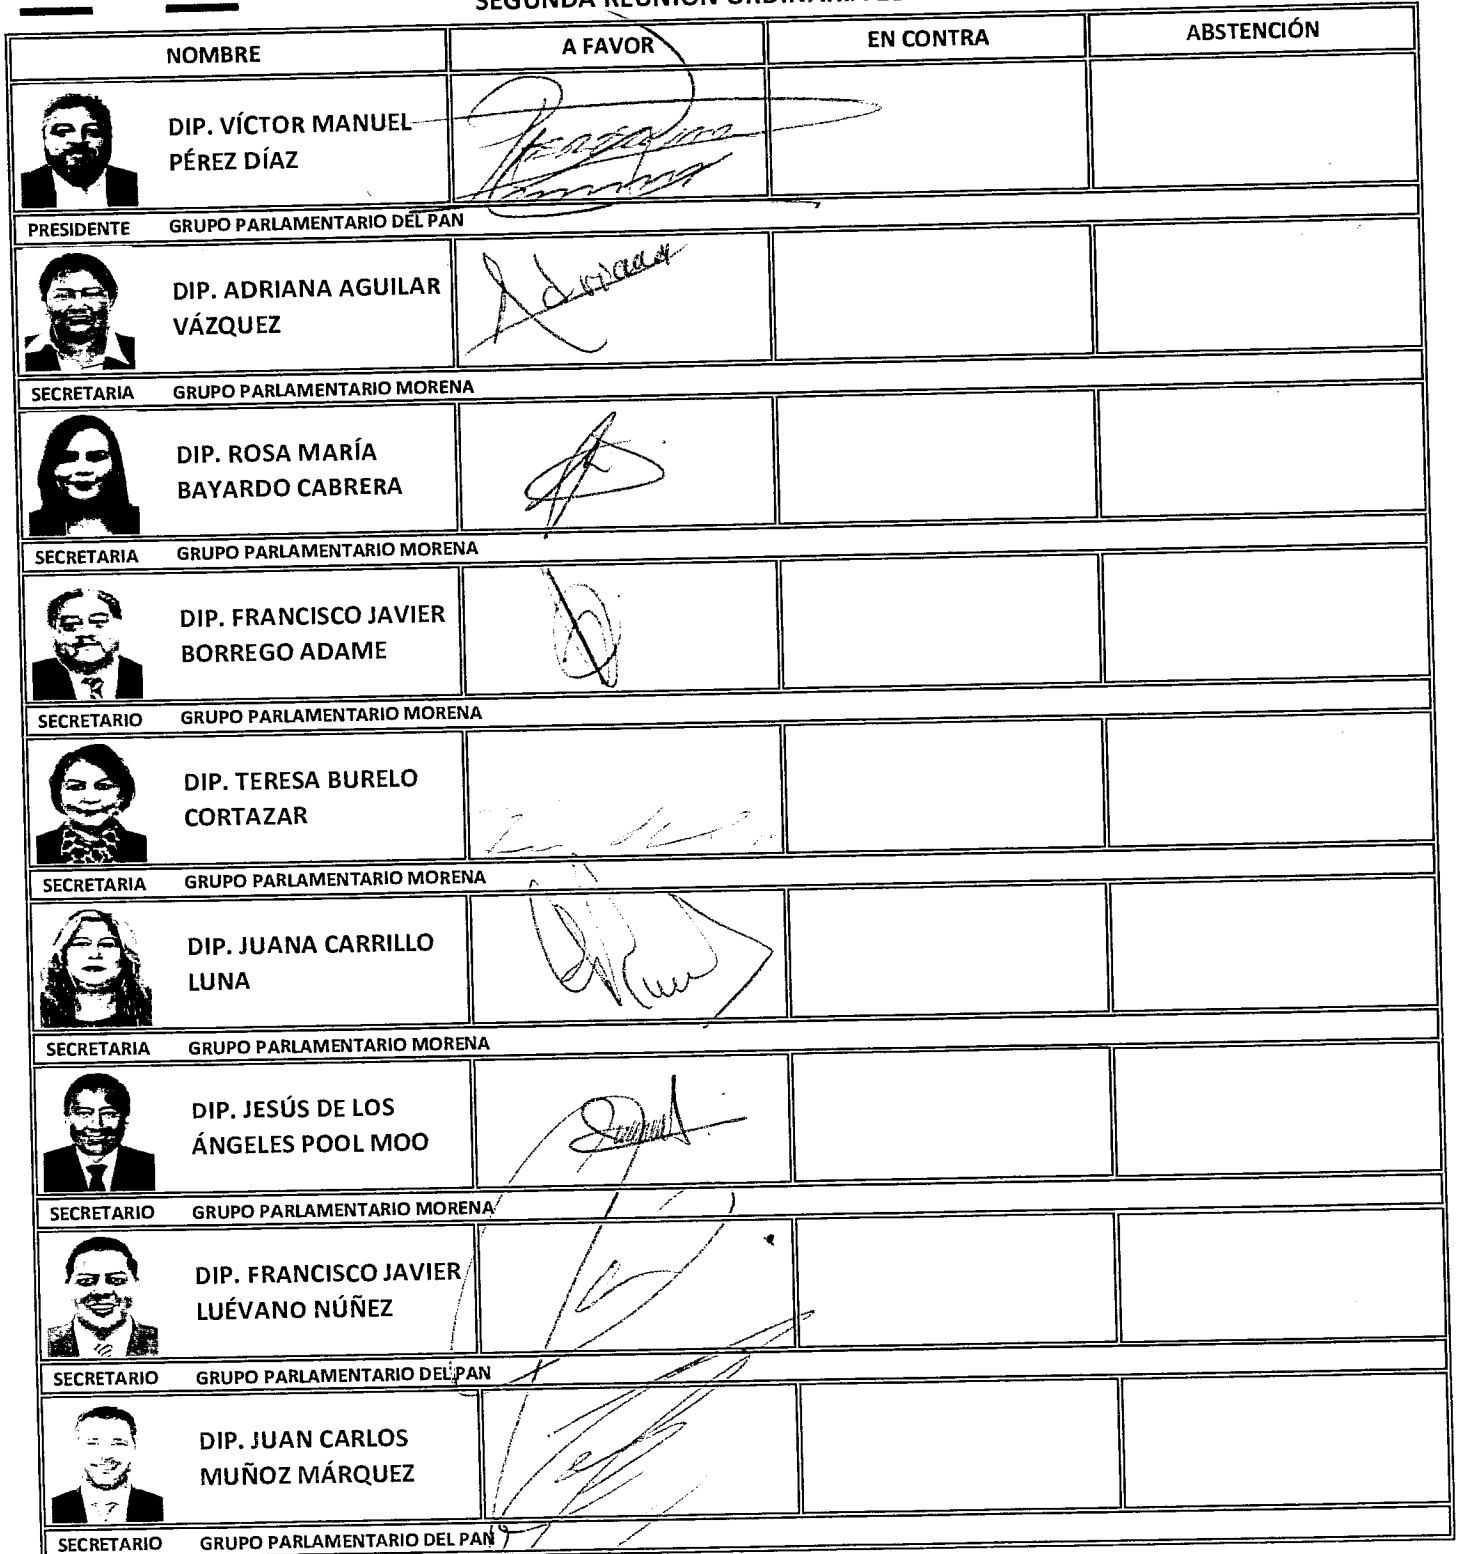 SEGUNDA REUNIÓN
NOMBRE A FAVOR EN CONTRA ABSTENCIÓN
DIP. VÍCTOR MANUEL
PÉREZ DÍAZ
PRESIDENTE GRUPO PARLAMENTARIO DEL PAN
DIP. ADRIANA AGUILAR
VÁZQUEZ
Adriana
SECRETARIA GRUPO PARLAMENTARIO MORENA
DIP. ROSA MARÍA
BAYARDO CABRERA
SECRETARIA GRUPO PARLAMENTARIO MORENA
DIP. FRANCISCO JAVIER
BORREGO ADAME
SECRETARIO GRUPO PARLAMENTARIO MORENA
DIP. TERESA BURELO
CORTAZAR
SECRETARIA GRUPO PARLAMENTARIO MORENA
DIP. JUANA CARRILLO
LUNA
SECRETARIA GRUPO PARLAMENTARIO MORENA
DIP. JESÚS DE LOS
ÁNGELES POOL MOO
SECRETARIO GRUPO PARLAMENTARIO MORENA
DIP. FRANCISCO JAVIER
LUÉVANO NÚÑEZ
SECRETARIO GRUPO PARLAMENTARIO DEL PAN
DIP. JUAN CARLOS
MUÑOZ MÁRQUEZ
SECRETARIO GRUPO PARLAMENTARIO DEL PAN